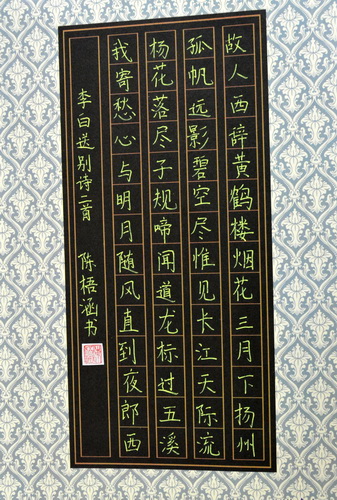 故人西辞黄鹤楼烟花三月下扬州
孤帆远影碧空尽惟见长江天际流
杨花落尽子规啼闻道龙标过五溪
我寄愁心与明月随风直到夜郎西
李白送别诗二首 陈梧涵书